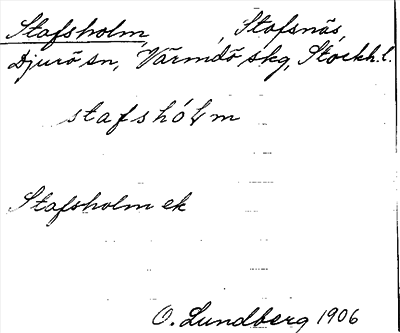 Stafsholm, Stafsnäs,
Djurö sn, Värmdö skg, Stockh.l.
stafshólm
Stafsholm ek
O. Lundberg 1906